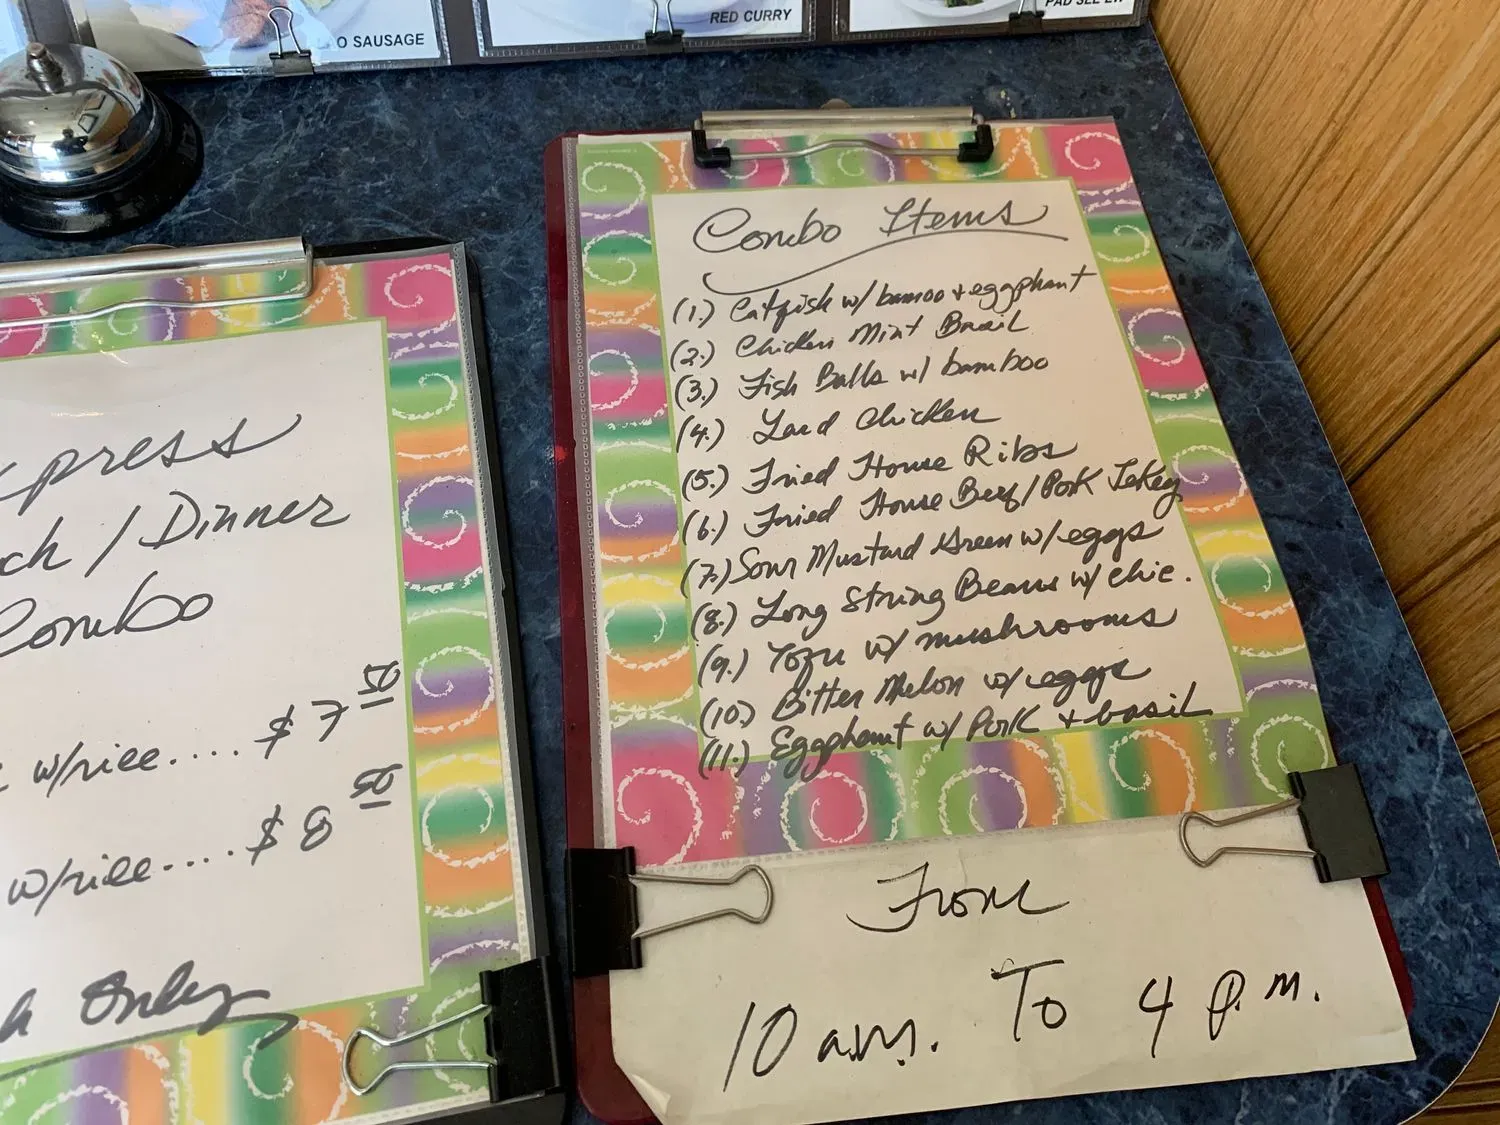 O SAUSAGE
RED CURRY
PAD SEE EW
xpress
ch / Dinner
Combo
w/rice.... $ 7 50
w/rice.... $ 8 50
h Only
Combo Items
(1.) Catfish w/ bamoo + eggphant
(2.) Chicken Mint Basil
(3.) Fish Balls w/ bamboo
(4.) Laad Chicken
(5.) Fried House Ribs
(6.) Fried House Beef/Pork Jekey
(7.) Sour Mustard Green w/ eggs
(8.) Long String Beans w/ chic.
(9.) Tofu w/ mushrooms
(10.) Bitter Melon w/ eggs
(11.) Eggphant w/ Pork + basil
From
10 a.m. To 4 p.m.